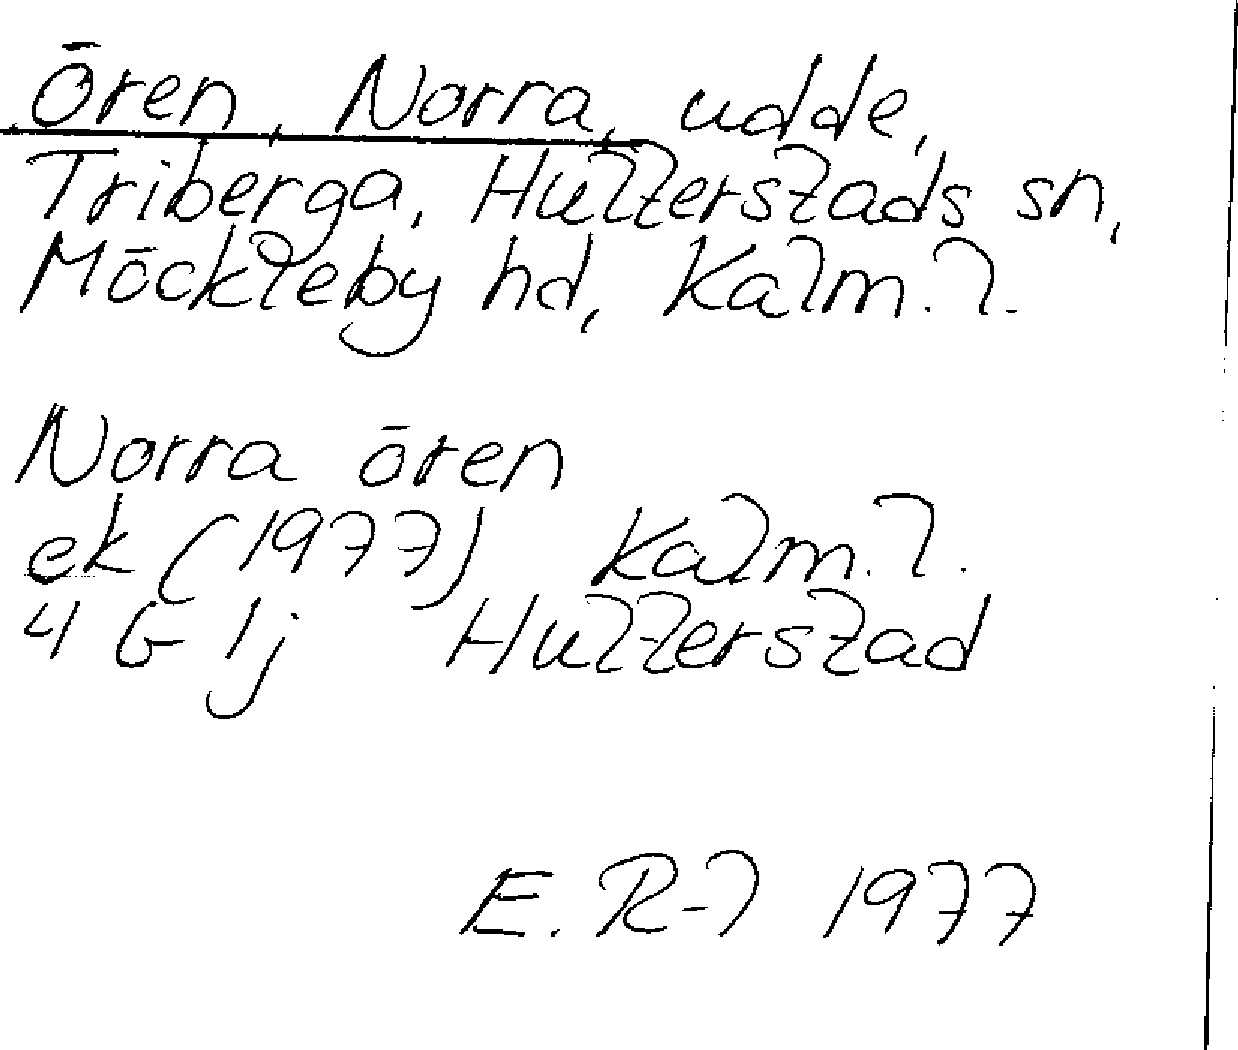 Ören, Norra, udde,
Triberga, Hulterstads sn,
Möckleby hd, Kalm. l.
Norra ören
ek (1977) Kalm. l.
4 G 1j Hulterstad
E. R-l 1977